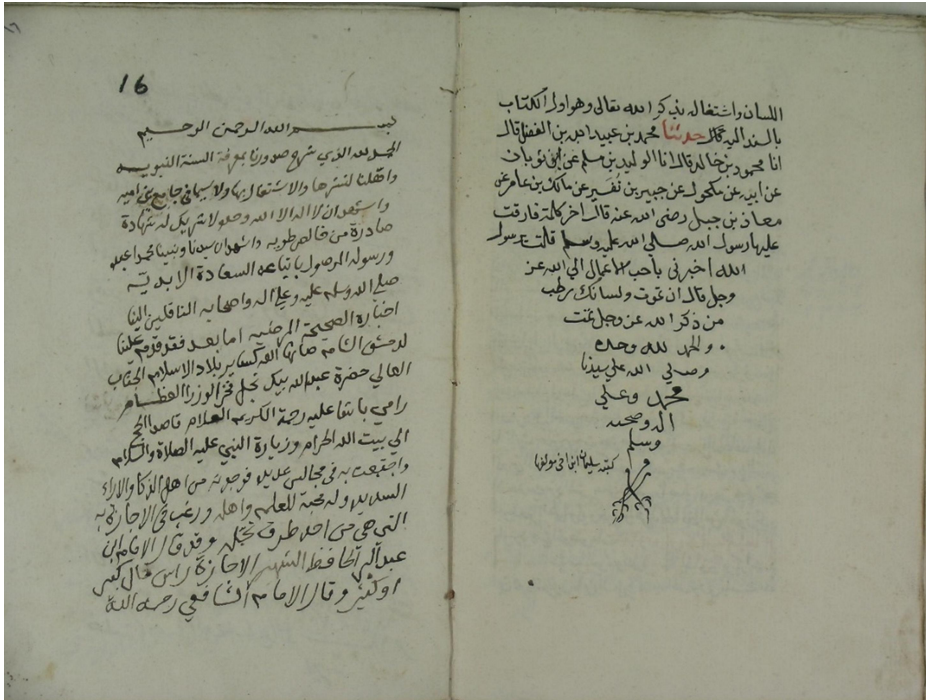 اللسان واشتغاله بذكر الله تعالى وهو اول الكتاب
بالسند اليه قال حدثنا محمد بن عبيد الله بن الفضل قال
انا محمود بن خالد قال انا الوليد بن مسلم عن ابن ثوبان
عن ابيه عن مكحول عن جبير بن نُفَير عن مالك بن عامر عن
معاذ بن جبل رضى الله عنه قال اخر كلمة فارقت
عليها رسول الله صلى الله عليه وسلم قلت يا رسول
الله اخبرنى باحب الاعمال الى الله عز
وجل قال ان تموت ولسانك رطب
من ذكر الله عز وجل تمت
والحمد لله وحده
وصلى الله على سيدنا
محمد وعلى
اله وصحبه
وسلم
كتبه سليمان
16
بسم الله الرحمن الرحيم
الحمد لله الذي شرح صدورنا بمعرفة السنة النبويه
واهلنا لنشرها والاشتغال بها ولا سيما في جامع بني اميه
واشهد ان لا اله الا الله وحده لا شريك له شهادة
صادرة من خالص طويه واشهد ان سيدنا ونبينا محمدا عبده
ورسوله الموصول باتباعه السعادة الابديه
صلى الله وسلم عليه وعلى اله واصحابه الناقلين الينا
اخباره الصحيحة المرضيه اما بعد فقد قدم علينا
لدمشق الشام صانها الله كساير بلاد الاسلام الجناب
العالي حضرة عبد الله بيك نجل فخر الوزرا العظام
رامي باشا عليه رحمة الكريم العلام قاصدا الحج
الى بيت الله الحرام وزيارة النبي عليه الصلاة والسلام
واجتمعت به في مجالس عديده فوجدته من اهل الذكا والاراء
السديده وله محبة للعلم واهله ورغب في الاجازة به
التي هي من احد طرق تحمله وقد قال الامام ابن
عبد البر الحافظ الشهير الاجازة راس مال كبير
او كثير وقال الامام الشافعي رحمه الله